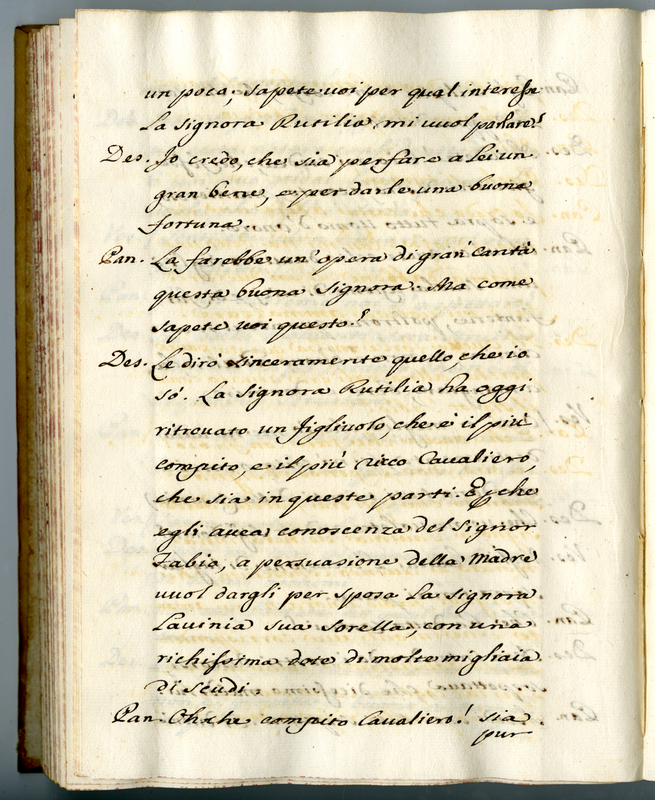 un poco; sapete voi per qual interesse
La Signora Rutilia mi vuol parlare?
Des. Io credo, che sia per fare a Lei un
gran bene, e per darle una buona
fortuna.
Pan. La farebbe un' opera di gran carità
questa buona Signora. Ma come
sapete voi questo?
Des. Le dirò sinceramente quello, che io
sò. La Signora Rutilia ha oggi
ritrovato un figlivolo, che è il più
compito, e il più ricco Cavaliero,
che sia in queste parti. E che
egli avea conoscenza del Signor
Fabio, a persuasione della Madre
vuol dargli per sposa La Signora
Lavinia sua Sorella, con una
richissima dote di molte migliaia
di Scudi.
Pan. Oh che compito Cavaliero! sia
pur